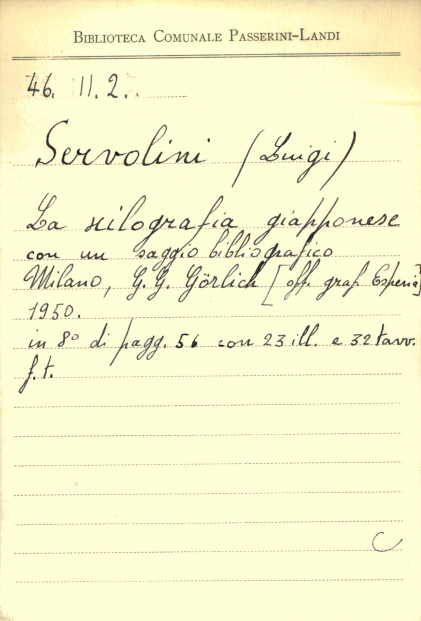 BIBLIOTECA COMUNALE PASSERINI-LANDI
46. II. 2.
Servolini (Luigi)
La xilografia giapponese
con un saggio bibliografico
Milano, G.G. Görlich [off. graf. Esperia]
1950.
in 8° di pagg. 56 con 23 ill. e 32 tavv.
f.t.
C